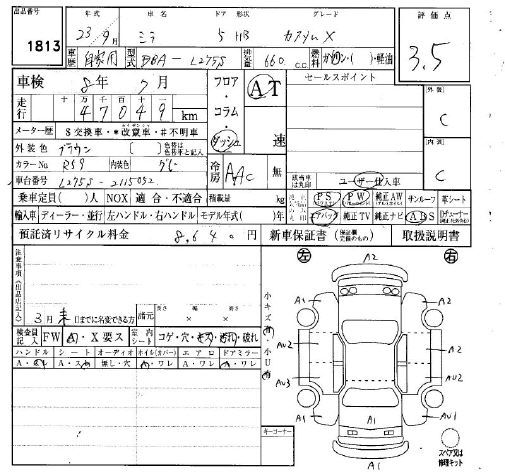 出品番号 年式 車名 ドア 形状 グレード 評価点
1813 23年9月 ミラ 5 HB カスタム X 3.5
車歴 自家用 型式 DBA-L275S 排気量 660 c.c. 燃料 ガソリン・( )・軽油
車検 8年7月 フロア・コラム・ダッシュ AT 速 セールスポイント 外装 C
走行 十 万 千 百 十 一
47049 km
メーター歴 $交換車・*改竄車・#不明車 内装 C
外装色 ブラウン [ ] 色替は色替車と記入
カラーNo R59 内装色 グレー 冷房 AAC 無
車台番号 L275S-2115032 該当車は丸印 ユーザー仕入車
乗車定員( )人 NOX 適合・不適合 積載量 kg PS PW 純正AW サンルーフ 革シート
輸入車 ディーラー・並行 左ハンドル・右ハンドル モデル年式( )年 エアバック 純正TV 純正ナビ ABS
預託済リサイクル料金 8,640円 新車保証書 取扱説明書
注意事項(出品店記入) 左 A2 右
小キズ有・小U有
A1 A2
3月末日までに名変できる方 諸元 長さ 幅 高さ × ×
検査員記入 FW A・X要ス 室内シート コゲ・穴・キズ・汚れ・破れ AU2 A2
ハンドル シート オーディオ ホイル(カバー) エアロ ドアミラー
A・スレ A・スレ 無し・穴 A・ワレ A・ワレ A・ワレ AU3 AU2
A1 A1 AU1
キーコーナー A1 スペア又は修理キット